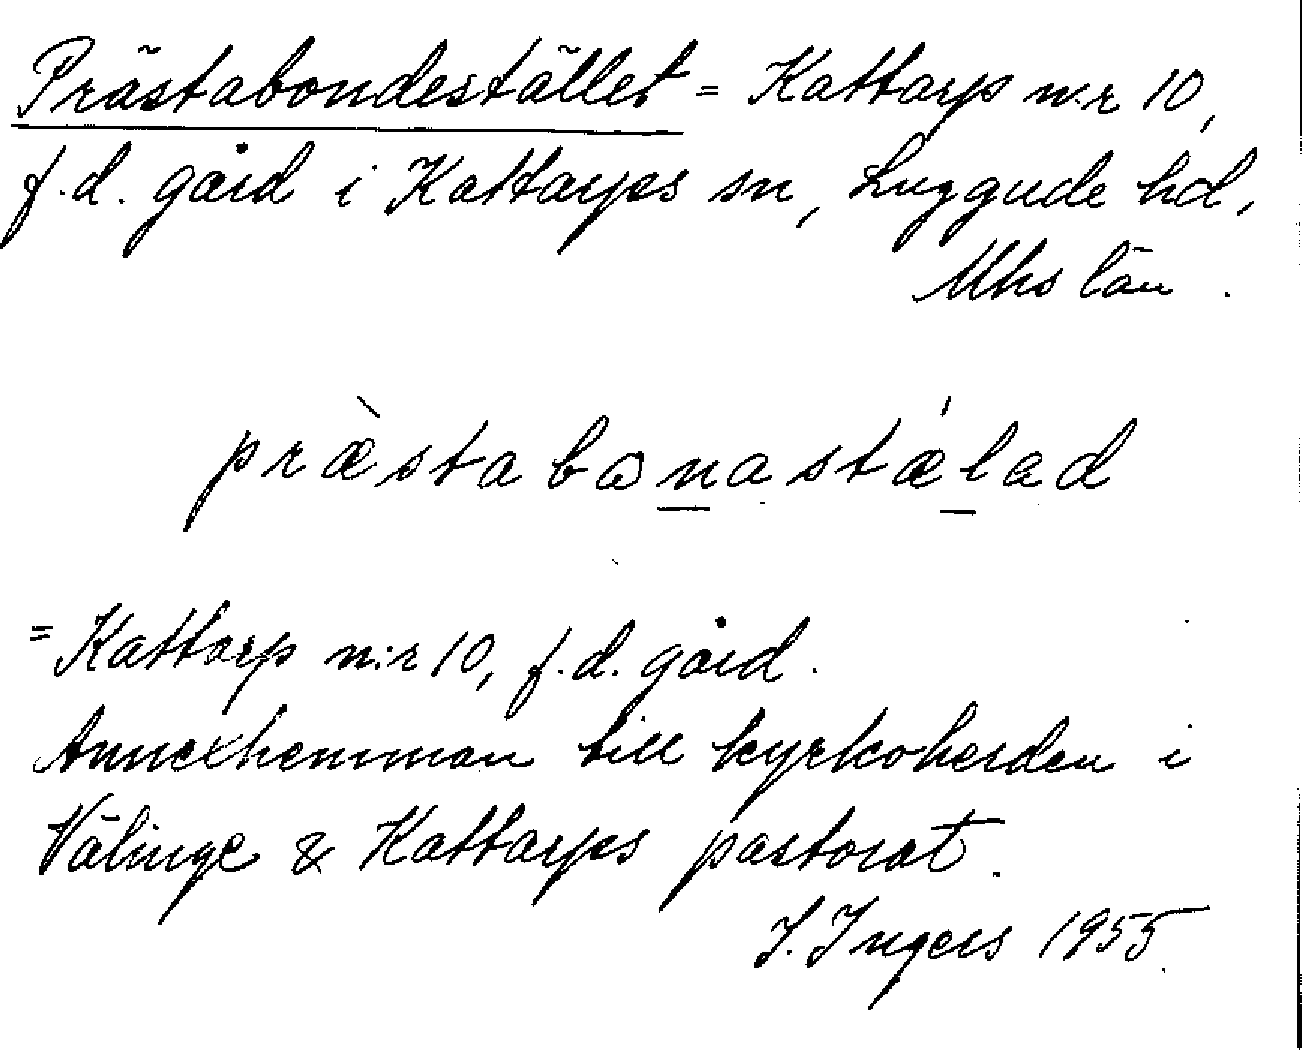 Prästabondestället = Kattarp n:r 10,
f.d. gård i Kattarps sn, Luggude hd,
Mhs län.
præ̀stabωnastǽlad
= Kattarp n:r 10, f.d. gård.
Annexhemman till kyrkoherden i
Välinge & Kattarps pastorat.
I. Ingers 1955.